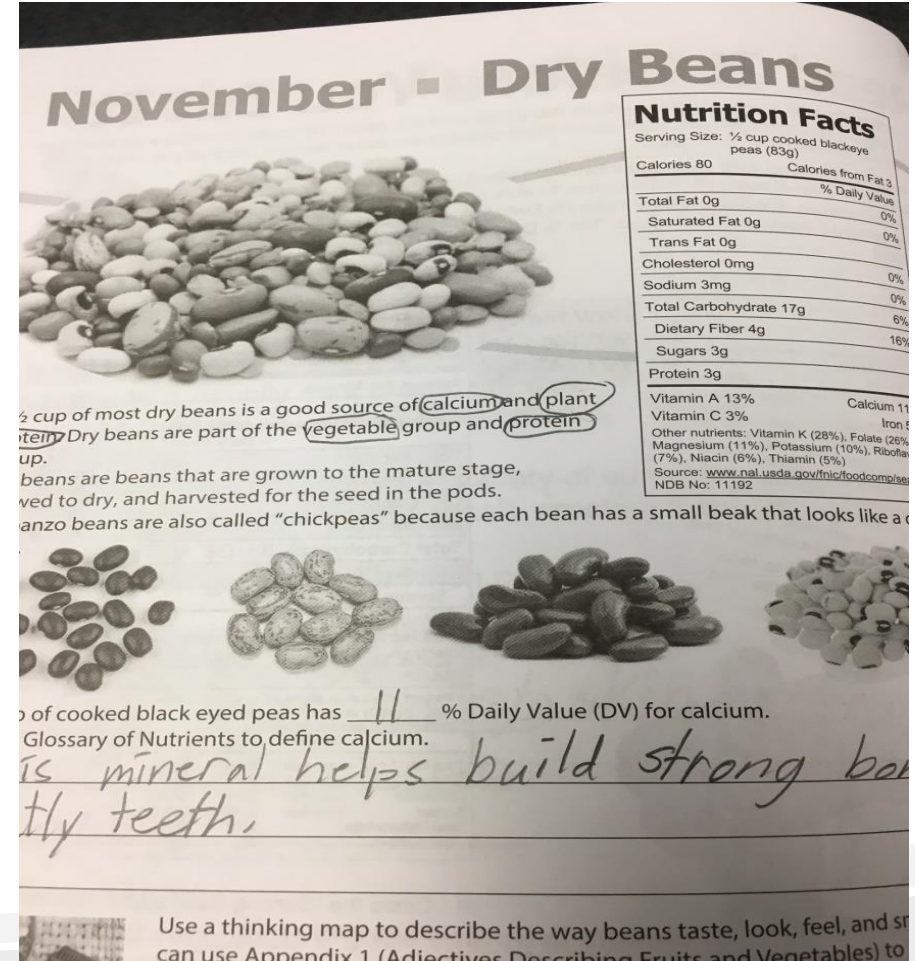 November ▪ Dry Beans
Nutrition Facts
Serving Size: ½ cup cooked blackeye
peas (83g)
Calories 80 Calories from Fat 3
% Daily Value
Total Fat 0g 0%
Saturated Fat 0g 0%
Trans Fat 0g
Cholesterol 0mg 0%
Sodium 3mg 0%
Total Carbohydrate 17g 6%
Dietary Fiber 4g 16%
Sugars 3g
Protein 3g
Vitamin A 13% Calcium 11
Vitamin C 3% Iron
Other nutrients: Vitamin K (28%), Folate (26%
Magnesium (11%), Potassium (10%),
(7%), Niacin (6%), Thiamin (5%)
Source: www.nal.usda.gov/fnic/foodcomp/sea
NDB No: 11192
½ cup of most dry beans is a good source of calcium and plant
tein. Dry beans are part of the vegetable group and protein
up.
beans are beans that are grown to the mature stage,
wed to dry, and harvested for the seed in the pods.
anzo beans are also called “chickpeas” because each bean has a small beak that looks like a
of cooked black eyed peas has 11 % Daily Value (DV) for calcium.
Glossary of Nutrients to define calcium.
is mineral helps build strong
tly teeth.
Use a thinking map to describe the way beans taste, look, feel, and
can use Appendix 1 (Adjectives Describing Fruits and Vegetables) to